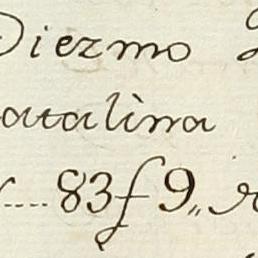 Diezmo
atalina
83f 9,,